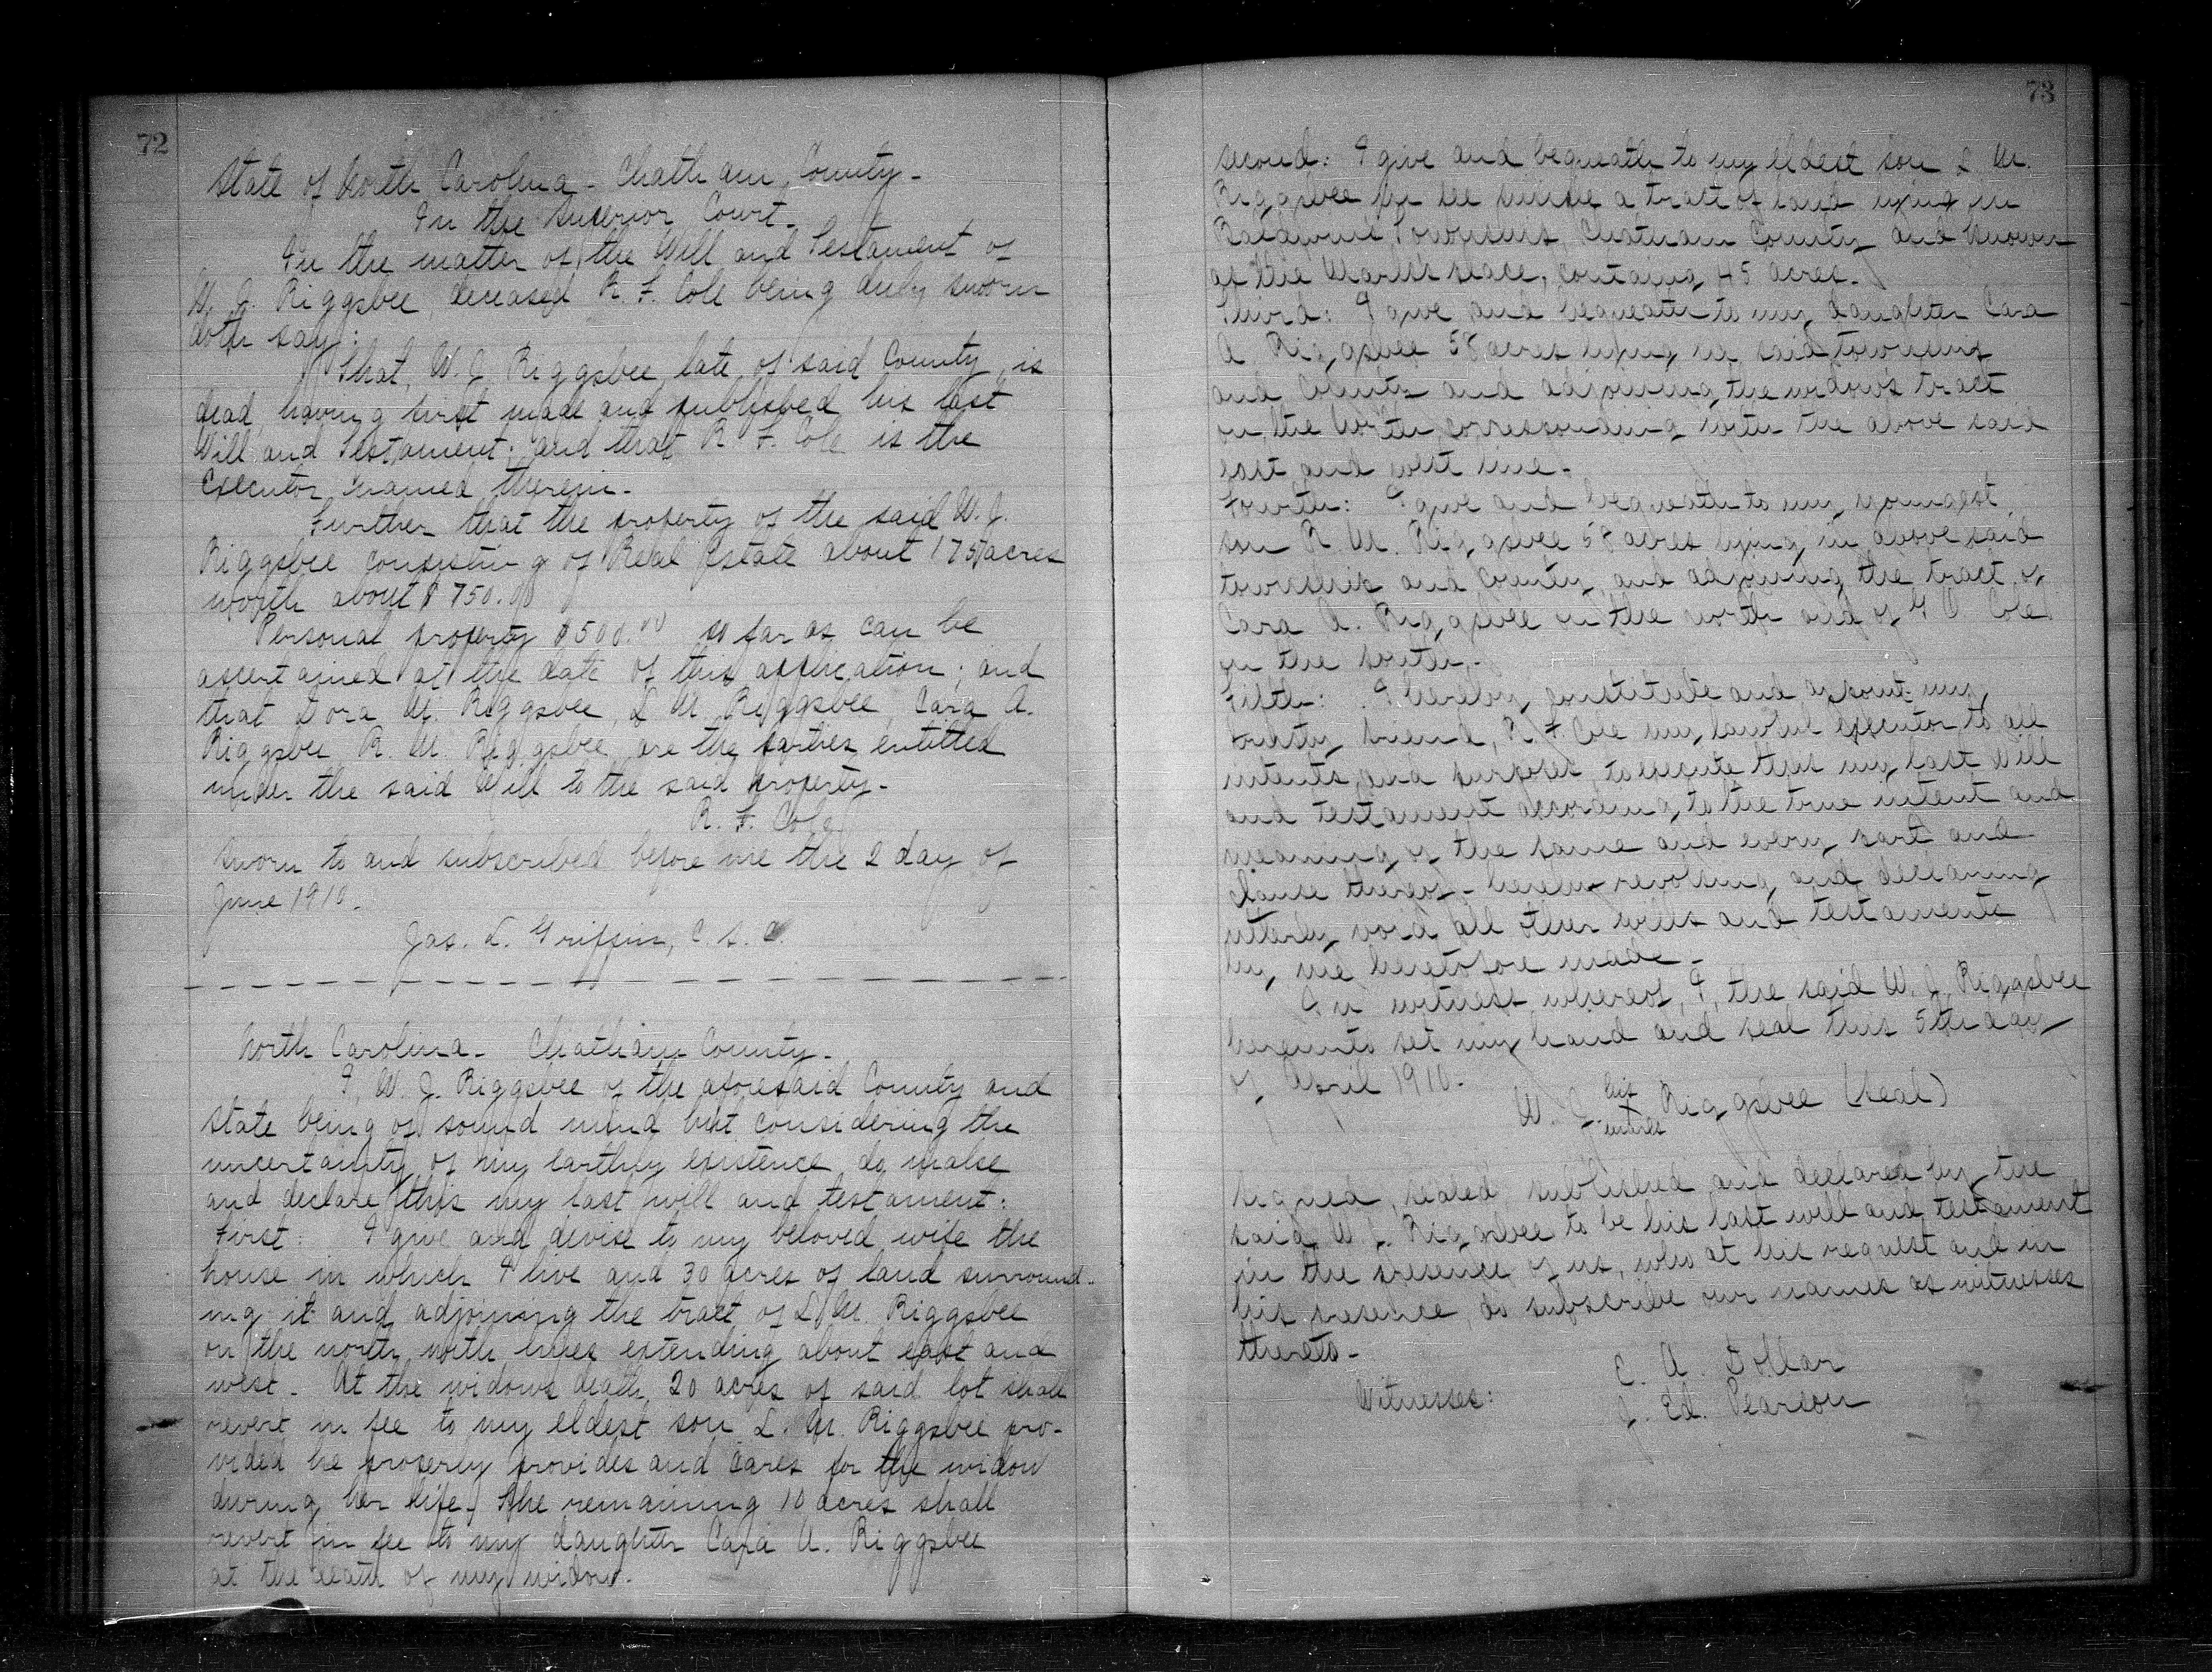 72
State of North Carolina - Chatham County -
In the Superior Court -
In the matter of the Will and Testament of
W. J. Riggsbee, deceased R. F. Cole being duly sworn
doth say:
That, W. J. Riggsbee, late of said County, is
dead, having first made and published his last
Will and Testament; and that R. F. Cole is the
Executor named therein -
Further that the property of the said W. J.
Riggsbee consisting of Real Estate about 175 acres
worth about $750.00
Personal property $500.00 so far as can be
ascertained at the date of this application; and
that Dora M. Riggsbee, L M Riggsbee, Cara A.
Riggsbee R. M. Riggsbee are the parties entitled
under the said Will to the said property -
R. F. Cole
Sworn to and subscribed before me the 2 day of
June 1910.
Jas. L. Griffin, C. S. C.
North Carolina - Chatham County -
I, W. J. Riggsbee of the aforesaid County and
State being of sound mind but considering the
uncertainty of my earthly existence do make
and declare this my last will and testament:
First: I give and devise to my beloved wife the
house in which I live and 30 acres of land surround-
ing it and adjoining the tract of L. M. Riggsbee
on the north with lines extending about east and
west - At the widows death, 20 acres of said lot shall
revert in fee to my eldest son L. M. Riggsbee pro-
vided he properly provides and cares for the widow
during her life. The remaining 10 acres shall
revert in fee to my daughter Cara A. Riggsbee
at the death of my widow.
73
Second: I give and bequeath to my eldest son L M.
Riggsbee in fee simple a tract of land lying in
Baldwin Township, Chatham County and known
as the place, containing 45 acres.
Third: I give and bequeath to my daughter Cara
A Riggsbee 58 acres lying in said township
and County and adjoining the widow's tract
on the North, corresponding with the above said
east and west line -
Fourth: I give and bequeath to my youngest
son R. M. Riggsbee 58 acres lying in above said
township and County and adjoining the tract of
Cara A. Riggsbee on the north and of Cole
on the south -
Fifth: I hereby constitute and appoint my
trusty friend, R. F. Cole my lawful executor to all
intents and purposes, to execute this my last will
and testament according to the true intent and
meaning of the same and every part and
clause thereof - hereby revoking and declaring
utterly void all other wills and testaments
by me heretofore made -
In witness whereof, I, the said W. J. Riggsbee
hereunto set my hand and seal this 5th day
of April 1910 -
W. J. his X mark Riggsbee (Seal)
Signed, sealed, published and declared by the
said W J. Riggsbee to be his last will and testament
in the presence of us, who at his request and in
his presence, do subscribe our names as witnesses
thereto -
Witnesses: C. A. Dollar
J. Ed. Pearson